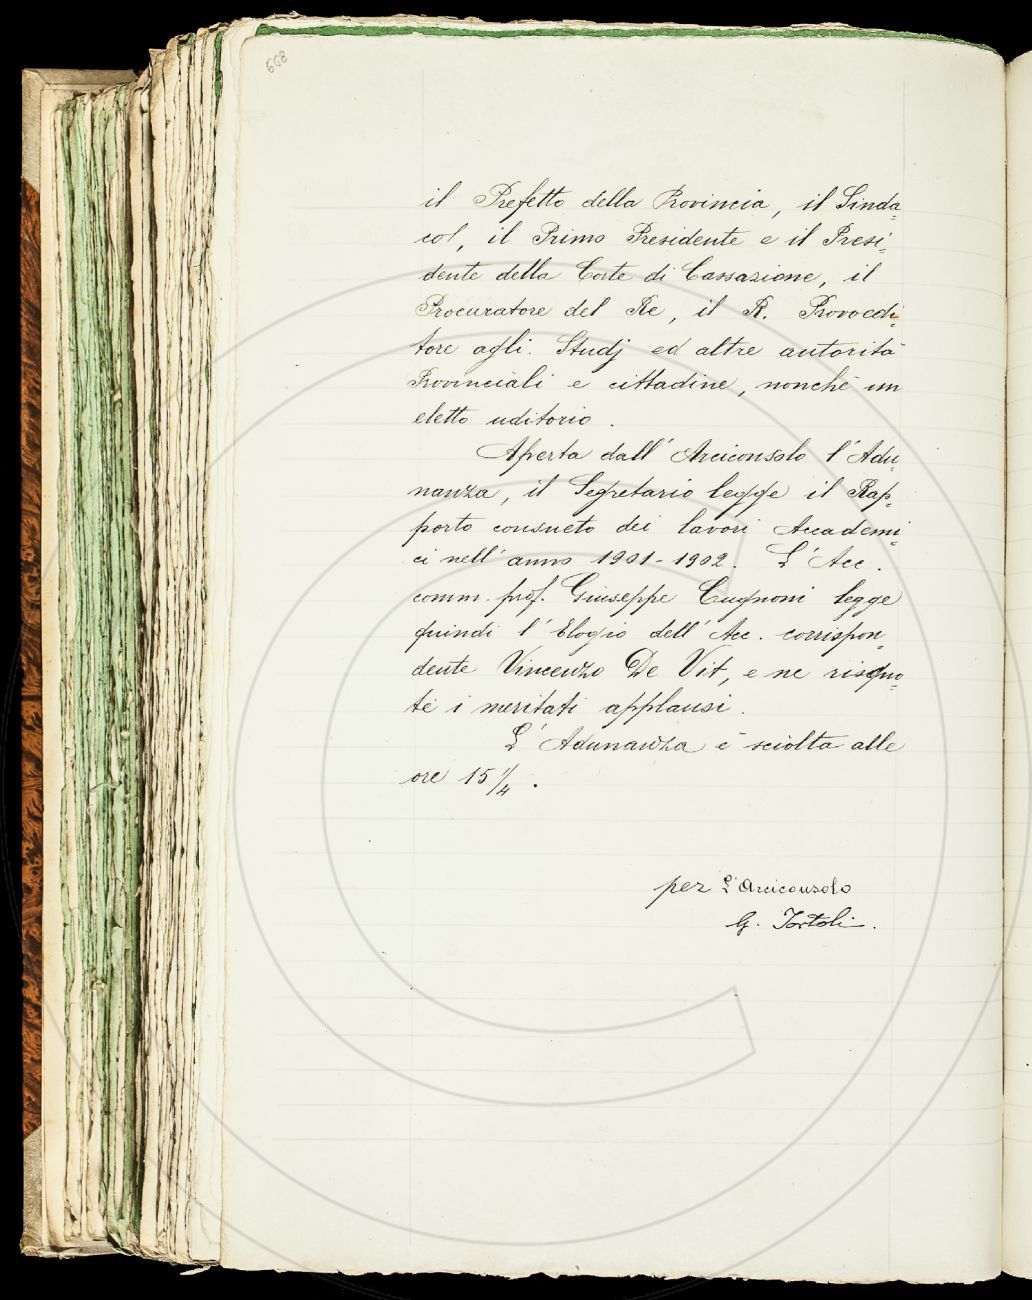 668
il Prefetto della Provincia, il Sinda=
co, il Primo Presidente e il Presi=
dente della Corte di Cassazione, il
Procuratore del Re, il R. Provvedi=
tore agli Studj ed altre autorità
Provinciali e cittadine, nonchè un
eletto uditorio.
Aperta dall'Arciconsolo l'Adu=
nanza, il Segretario legge il Rap=
porto consueto dei lavori Accademi=
ci nell'anno 1901-1902. L'Acc.
comm. prof. Giuseppe Cugnoni legge
quindi l'Elogio dell'Acc. corrispon=
dente Vincenzo De Vit, e ne riscuo=
te i meritati applausi.
L'Adunanza è sciolta alle
ore 15 1/4.
per L'Arciconsolo
G. Tortoli.